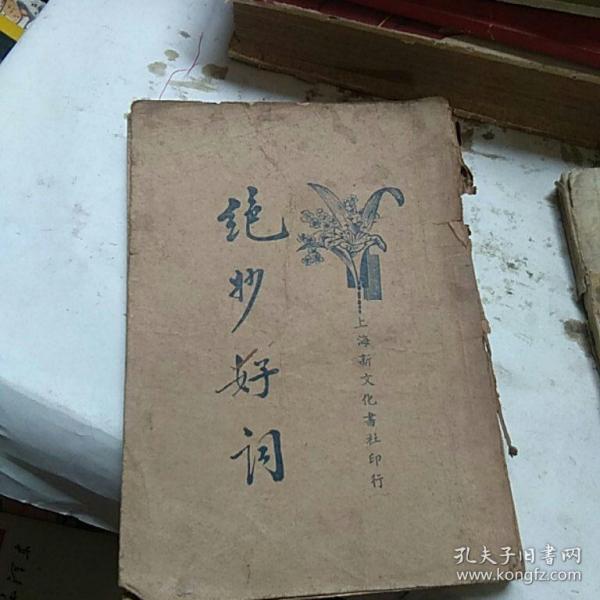 绝妙好词
上海新文化書社印行
孔夫子旧书网
www.kongfz.com